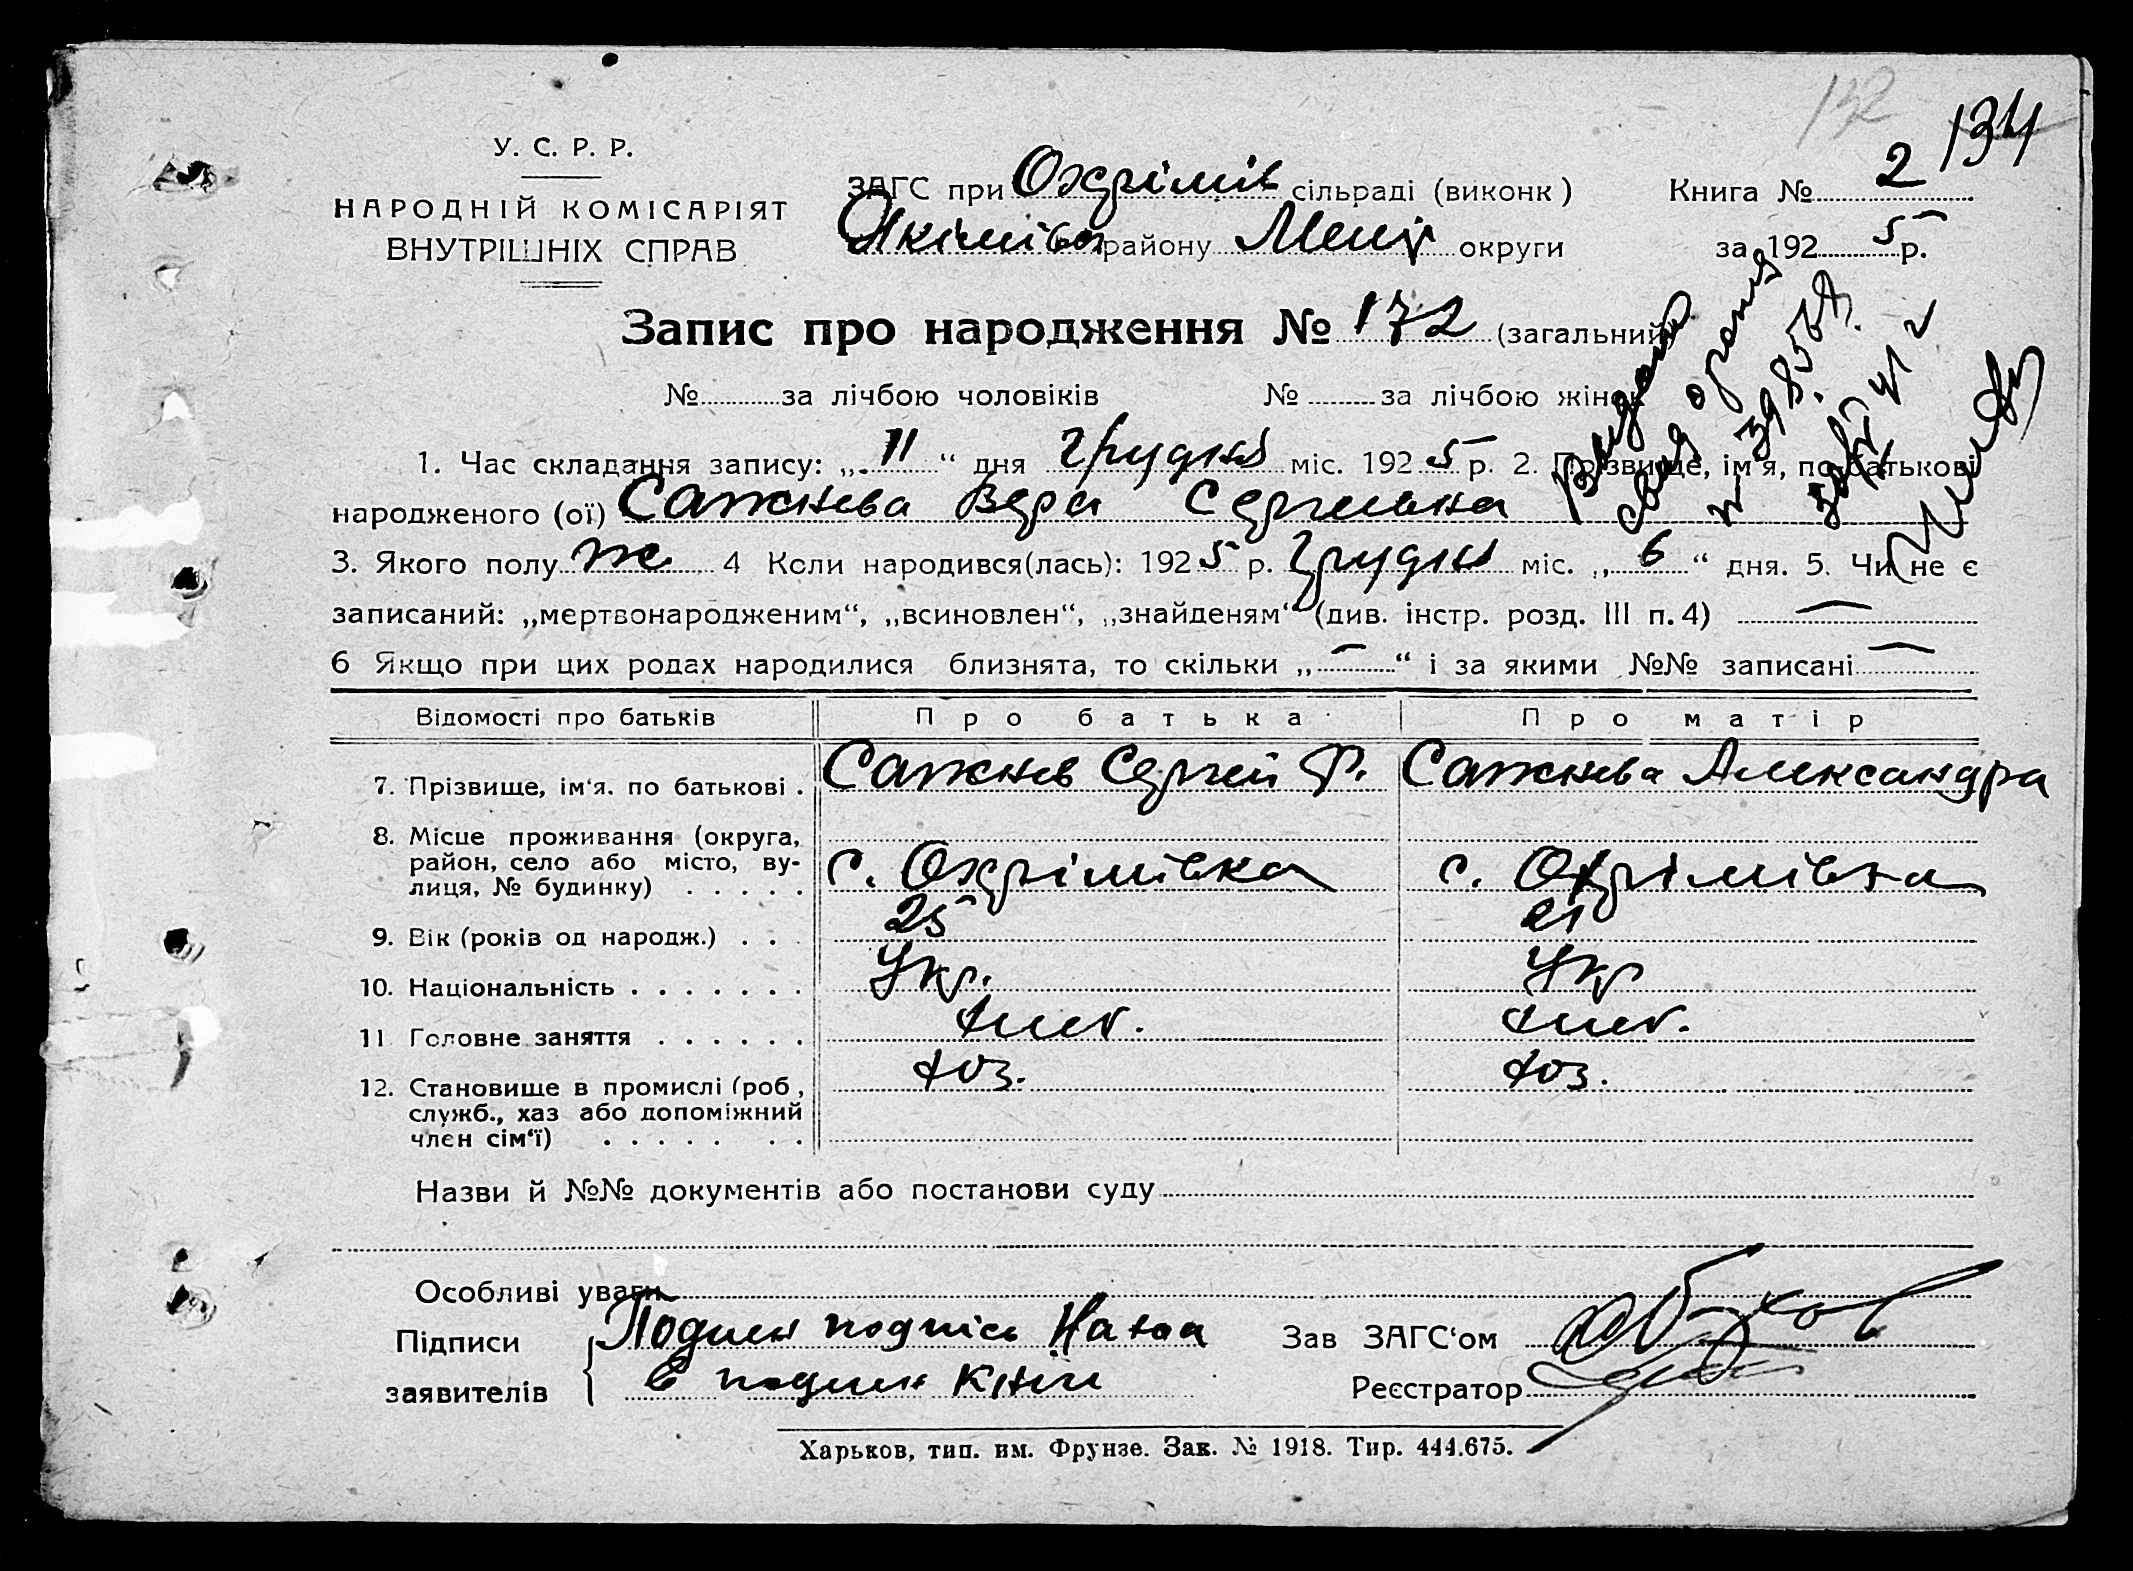 132
134
У. С. Р. Р.
НАРОДНІЙ КОМІСАРІЯТ
ВНУТРІШНІХ СПРАВ
ЗАГС при Охрімів сільраді (виконк)
Якімівск району Меліт округи
Книга № 2
за 1925 р.
Запис про народження № 172 (загальний)
№ за лічбою чоловіків № за лічбою жінок
1. Час складання запису: „11“ дня грудня міс. 1925 р. 2. Прізвище, ім'я, по батькові
народженого (ої) Сажнева Вера Сергеевна
3. Якого полу ж 4 Коли народився(лась): 1925 р. грудня міс. „6“ дня. 5. Чи не є
записаний: „мертвонародженим“, „всиновлен“, „знайденям“ (див. інстр. розд. III п. 4) —
6 Якщо при цих родах народилися близнята, то скільки „—“ і за якими №№ записані —
Відомості про батьків Про батька Про матір
7. Прізвище, ім'я. по батькові . Сажнев Сергей Ф. Сажнева Александра
8. Місце проживання (округа,
район, село або місто, ву-
лиця, № будинку) . . . . . с. Охрімівка с. Охрімівка
9. Вік (років од народж.) . . . 25 21
10. Національність . . . . . . . Укр. Укр
11 Головне заняття . . . . . .
12. Становище в промислі (роб., хоз. хоз.
служб., хаз або допоміжний
член сім'ї) . . . . . . .
Назви й №№ документів або постанови суду
Особливі уваги
Підписи
заявителів
Зав ЗАГС'ом
Реєстратор
Харьков, тип. им. Фрунзе. Зак. № 1918. Тир. 444.675.